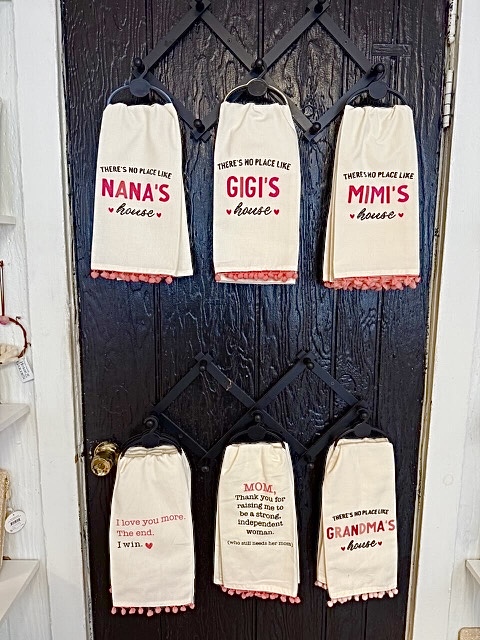 THERE'S NO PLACE LIKE
NANA'S
house
THERE'S NO PLACE LIKE
GIGI'S
house
THERE'S NO PLACE LIKE
MIMI'S
house
I love you more.
The end.
I win.
MOM,
Thank you for
raising me to
be a strong,
independent
woman.
(who still needs her mom)
THERE'S NO PLACE LIKE
GRANDMA'S
house